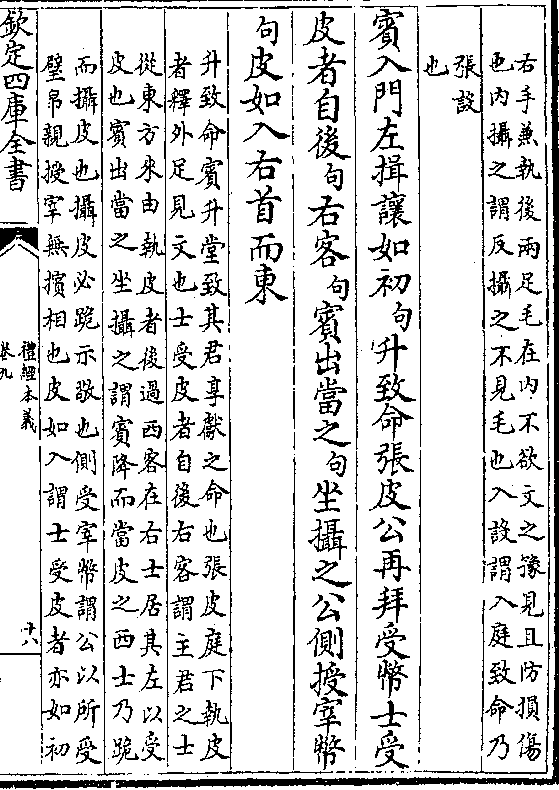 右手兼執後兩足毛在内不欲文之豫見且防損傷
也内攝之謂反攝之不見毛也入設謂入庭致命乃
張設
也
賓入門左揖讓如初句升致命張皮公再拜受幣士受
皮者自後句右客句賓出當之句坐攝之公側授宰幣
句皮如入右首而東
升致命賓升堂致其君享獻之命也張皮庭下執皮
者釋外足見文也士受皮者自後右客謂主君之士
從東方來由執皮者後過西客在右士居其左以受
皮也賓出當之坐攝之謂賓降而當皮之西士乃跪
而攝皮也攝皮必跪示敬也側受宰幣謂公以所受
璧帛親授宰無擯相也皮如入謂士受皮者亦如初
欽定四庫全書
禮經本義
卷九
十八